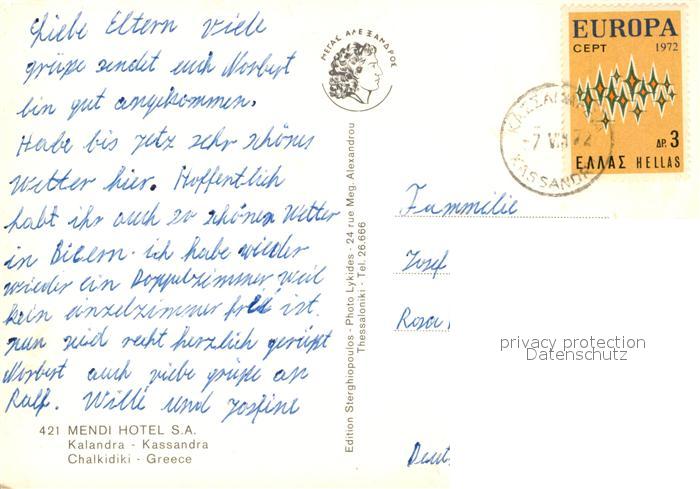 Liebe Eltern viele
grüße sendet euch Norbert
bin gut angekommen.
Habe bis jetz sehr schönes
wetter hier. Hoffentlich
habt ihr auch so schönes Wetter
in ich habe wieder
wieder ein Doppelzimmer weil
kein einzelzimmer frei ist.
nun seid recht herzlich gegrüßt
Norbert auch viele grüße an
Ralf. Willi und Josfine
421 MENDI HOTEL S.A.
Kalandra - Kassandra
Chalkidiki - Greece
ΜΕΓΑΣ ΑΛΕΞΑΝΔΡΟΣ
Edition Sterghiopoulos - Photo Lykides - 24 rue Meg. Alexandrou
Thessaloniki - Tel. 26.666
EUROPA
CEPT 1972
ΔΡ. 3
ΕΛΛΑΣ HELLAS
-7 VII 72
KASSANDR
Fammilie
Josef
Rosa
privacy protection
Datenschutz
Deut